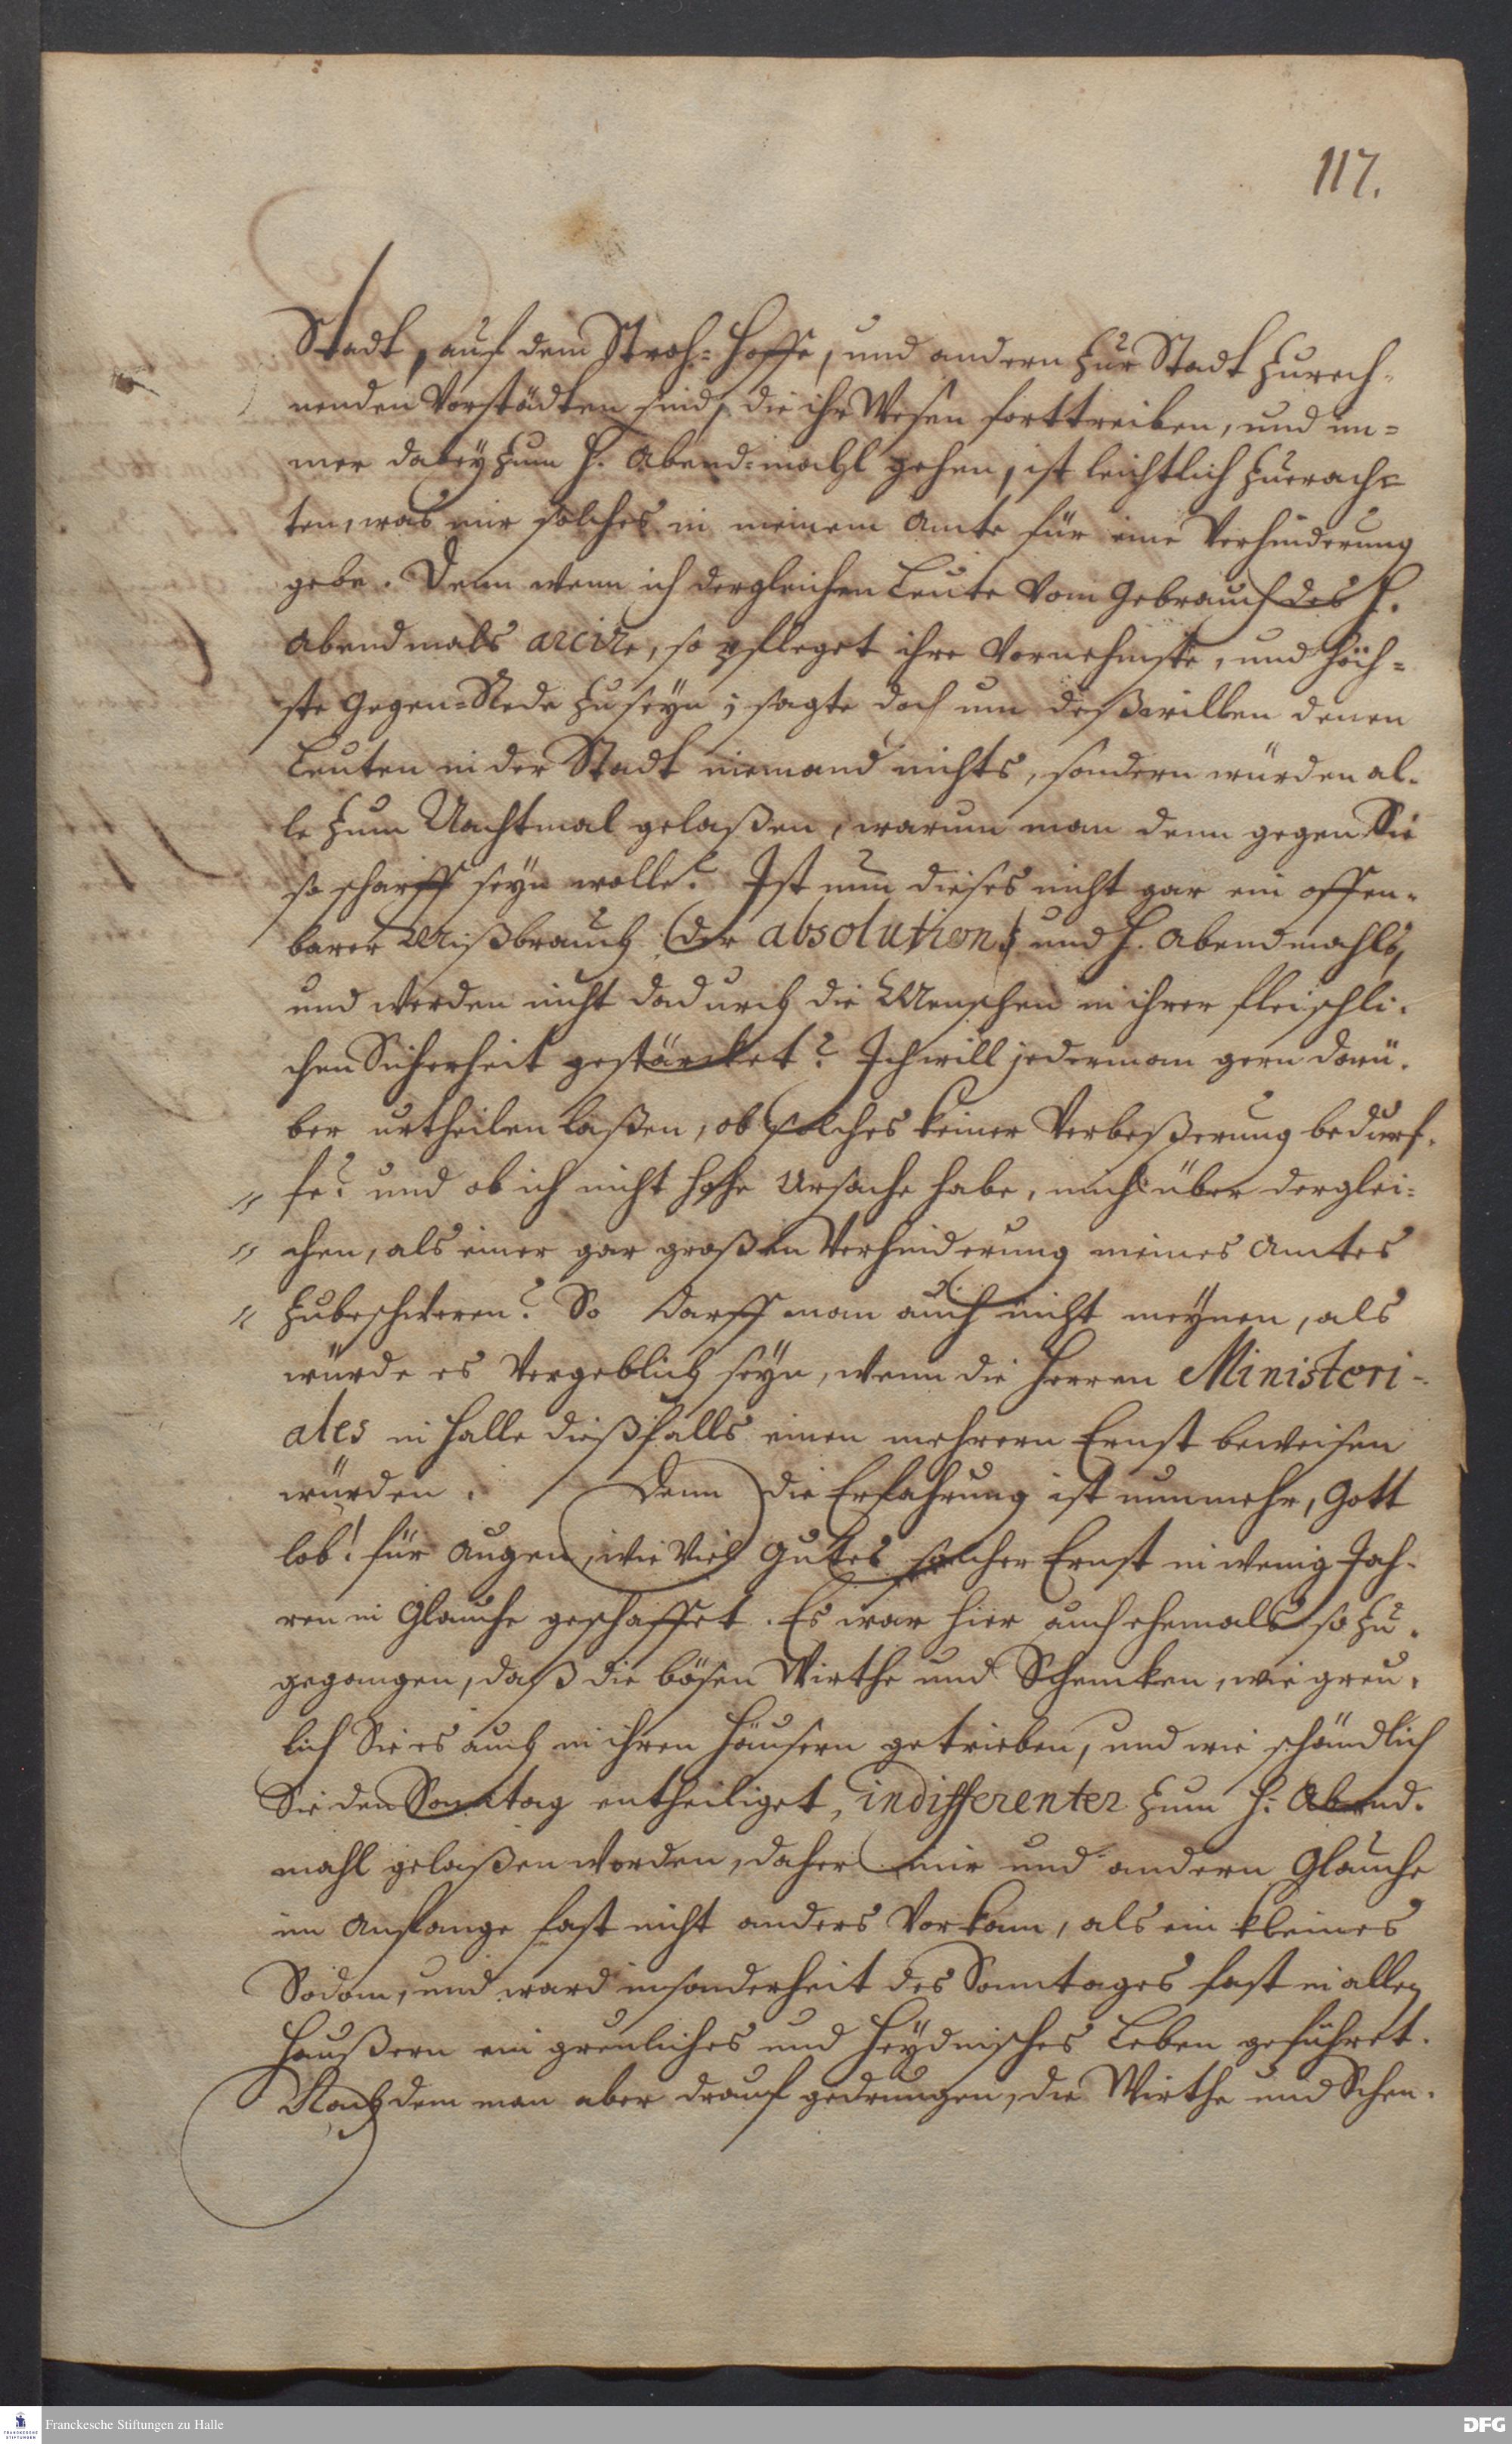 117.
Stadt, auf dem Stroh-Hoffe, und andern zur Stadt zurech-
nenden Vorstädten sind, die ihr Wesen forttreiben, und im-
mer dabey zum H. Abend-mahl gehen, ist leichtlich zuerach-
ten, was mir solches in meinem Amte für eine Verhinderung
gebe. Denn wenn ich dergleichen Leute vom Gebrauch des H.
Abendmals arcire, so pfleget ihre Vornehmste, und höch-
ste Gegen-Rede zu seyn; sagte doch um deßwillen denen
Leuten in der Stadt niemand nichts, sondern würden al-
le zum Nachtmal gelaßen, warum man denn gegen Sie
so scharff seyn wolle? Ist nun dieses nicht gar ein offen-
barer Mißbrauch (der absolution) und H. Abendmahls,
und werden nicht dadurch die Menschen in ihrer fleischli-
chen Sicherheit gestärcket? Ich will jederman gern darü-
ber urtheilen laßen, ob solches keiner Verbeßerung bedurf-
" fe? und ob ich nicht hohe Ursache habe, mich über derglei-
" chen, als einer gar großen Verhinderung meines Amtes
" zubeschweren? So darff man auch nicht meynen, als
würde es vergeblich seyn, wenn die Herren Ministeri-
ales in Halle dießfalls einen mehrern Ernst beweisen
würden. Denn die Erfahrung ist nunmehr, Gott
lob! für Augen, wie viel Gutes solcher Ernst in wenig Jah-
ren in Glauche geschaffet. Es war hier auch ehemals so zu-
gegangen, daß die bösen Wirthe und Schencken, wie greu-
lich Sie es auch in ihren Häusern getrieben, und wie schändlich
Sie den Sonntag entheiliget, indifferenter zum H. Abend-
mahl gelaßen worden, daher mir und andern Glauche
im Anfange fast nicht anders vorkam, als ein kleines
Sodom, und ward insonderheit des Sonntages fast in allen
Haußern ein greuliches und Heydnisches Leben geführet.
Nachdem man aber drauf gedrungen, die Wirthe und Schen-
Franckesche Stiftungen zu Halle
DFG